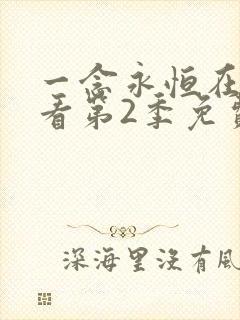 一念永恒在
看第2季免费
深海里没有风